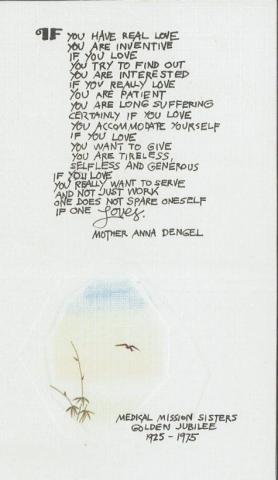 IF YOU HAVE REAL LOVE
YOU ARE INVENTIVE
IF YOU LOVE
YOU TRY TO FIND OUT
YOU ARE INTERESTED
IF YOU REALLY LOVE
YOU ARE PATIENT
YOU ARE LONG SUFFERING
CERTAINLY IF YOU LOVE
YOU ACCOMMODATE YOURSELF
IF YOU LOVE
YOU WANT TO GIVE
YOU ARE TIRELESS,
SELFLESS AND GENEROUS
IF YOU LOVE
YOU REALLY WANT TO SERVE
AND NOT JUST WORK
ONE DOES NOT SPARE ONESELF
IF ONE Loves.
MOTHER ANNA DENGEL
MEDICAL MISSION SISTERS
GOLDEN JUBILEE
1925 - 1975